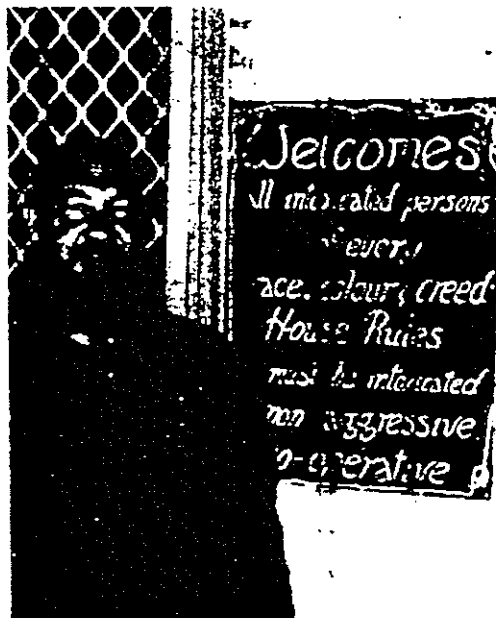 Welcomes
All intoxicated persons
of every
race, colour, creed
House Rules
must be intoxicated
non aggressive
co-operative